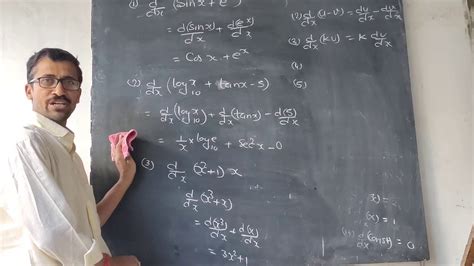 (1) d/dx (sinx + eˣ)
= d(sinx)/dx + d(eˣ)/dx
= Cosx + eˣ
(2) d/dx (log₁₀x + tanx - 5)
= d/dx (log₁₀x) + d/dx (tanx) - d(5)/dx
= 1/x × log₁₀e + sec²x - 0
(3) d/dx (x²+1) x
d/dx (x³+x)
= d(x³)/dx + d(x)/dx
= 3x²+1
(2) d/dx (u-v) = du/dx - dv/dx
(3) d/dx (ku) = k du/dx
(4)
(5)
(x) = 1
d/dx (const) = 0